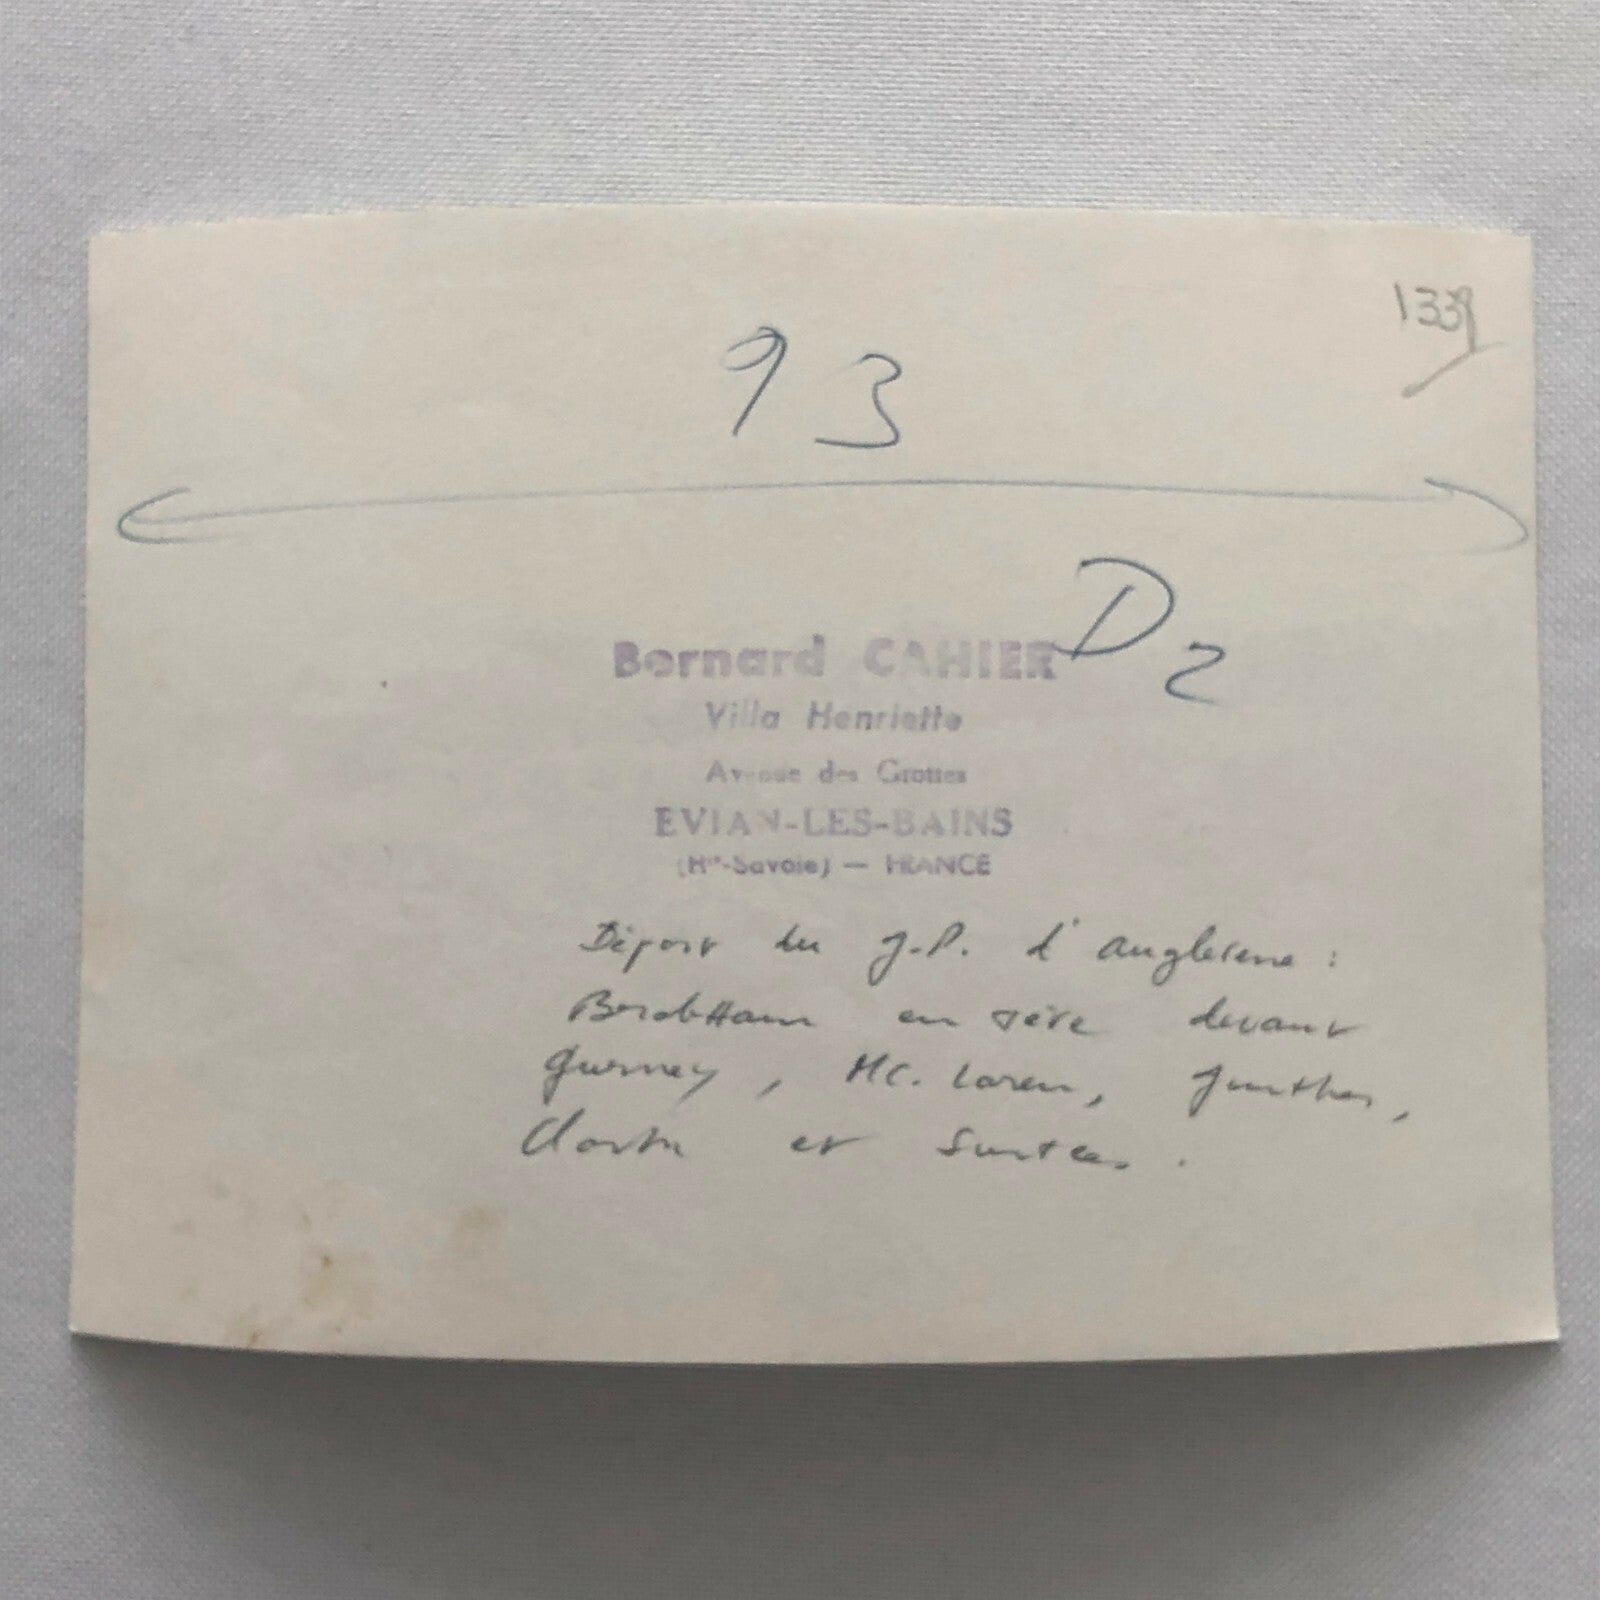 1339
93
D2
Bernard CAHIER
Villa Henriette
Avenue des Grottes
EVIAN-LES-BAINS
(Hte-Savoie) — FRANCE
Départ du G.P. d'Angleterre :
en tête devant
Gurney, Mc. Laren, Gunther,
Clark et Surtees.